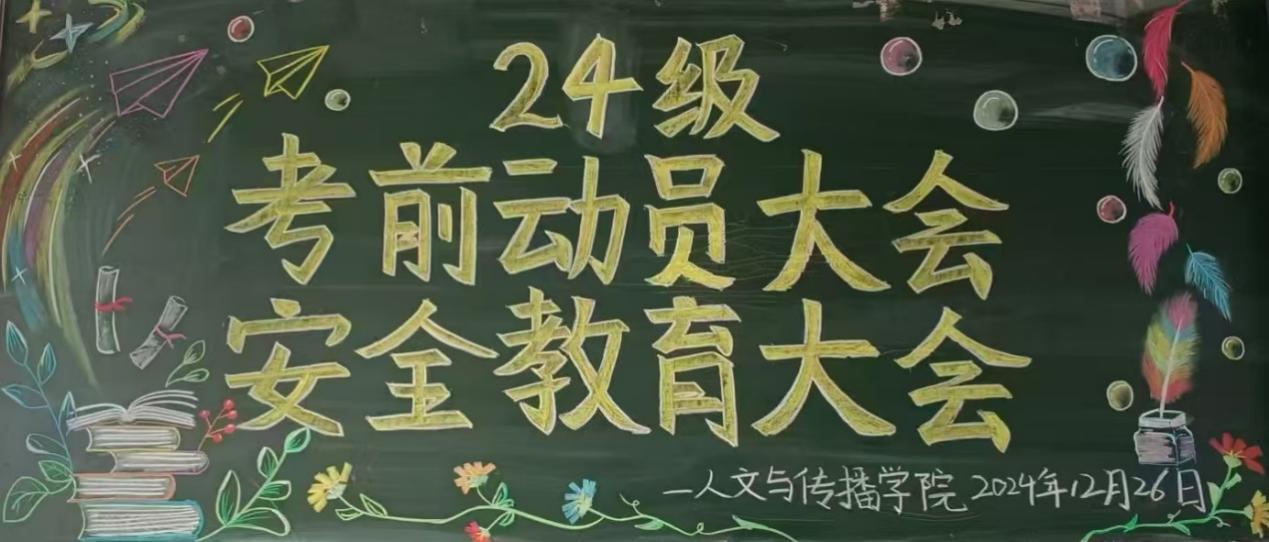 24级
考前动员大会
安全教育大会
—人文与传播学院 2024年12月26日